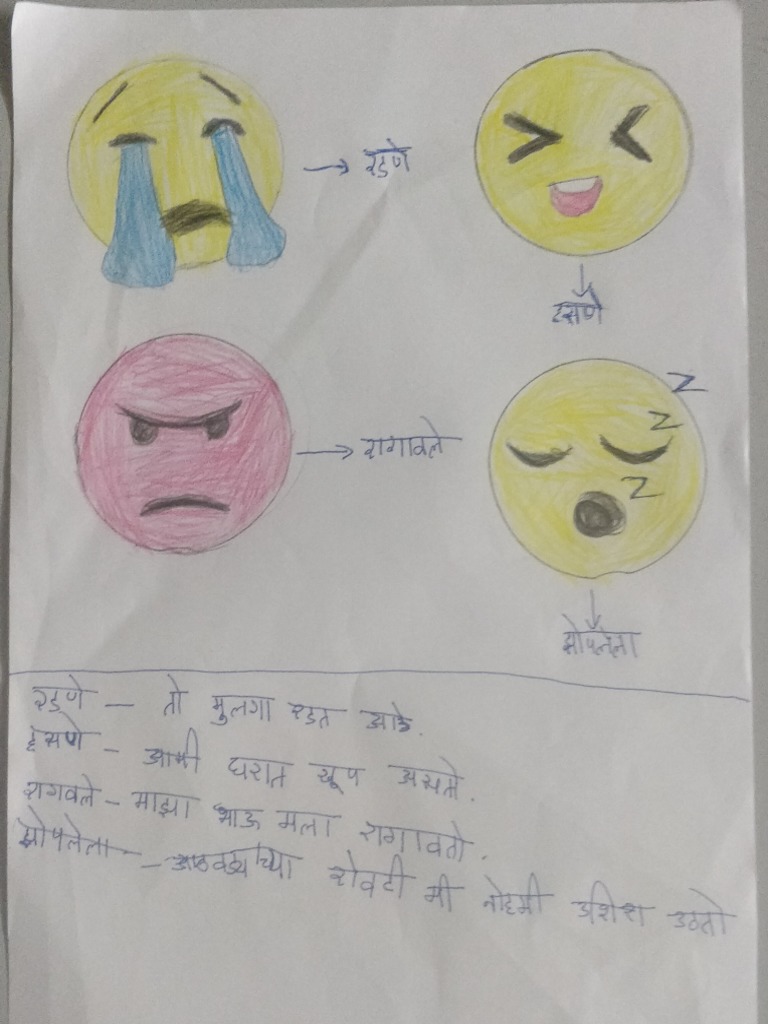 रडणे
हसणे
रागावले
z
z
z
झोपलेला
रडणे – तो मुलगा रडत आहे.
हसणे – आम्ही घरात खूप असतो.
रागवले – माझा भाऊ मला रागावतो.
झोपलेला – आठवड्याच्या शेवटी मी नेहमी उशिरा उठतो